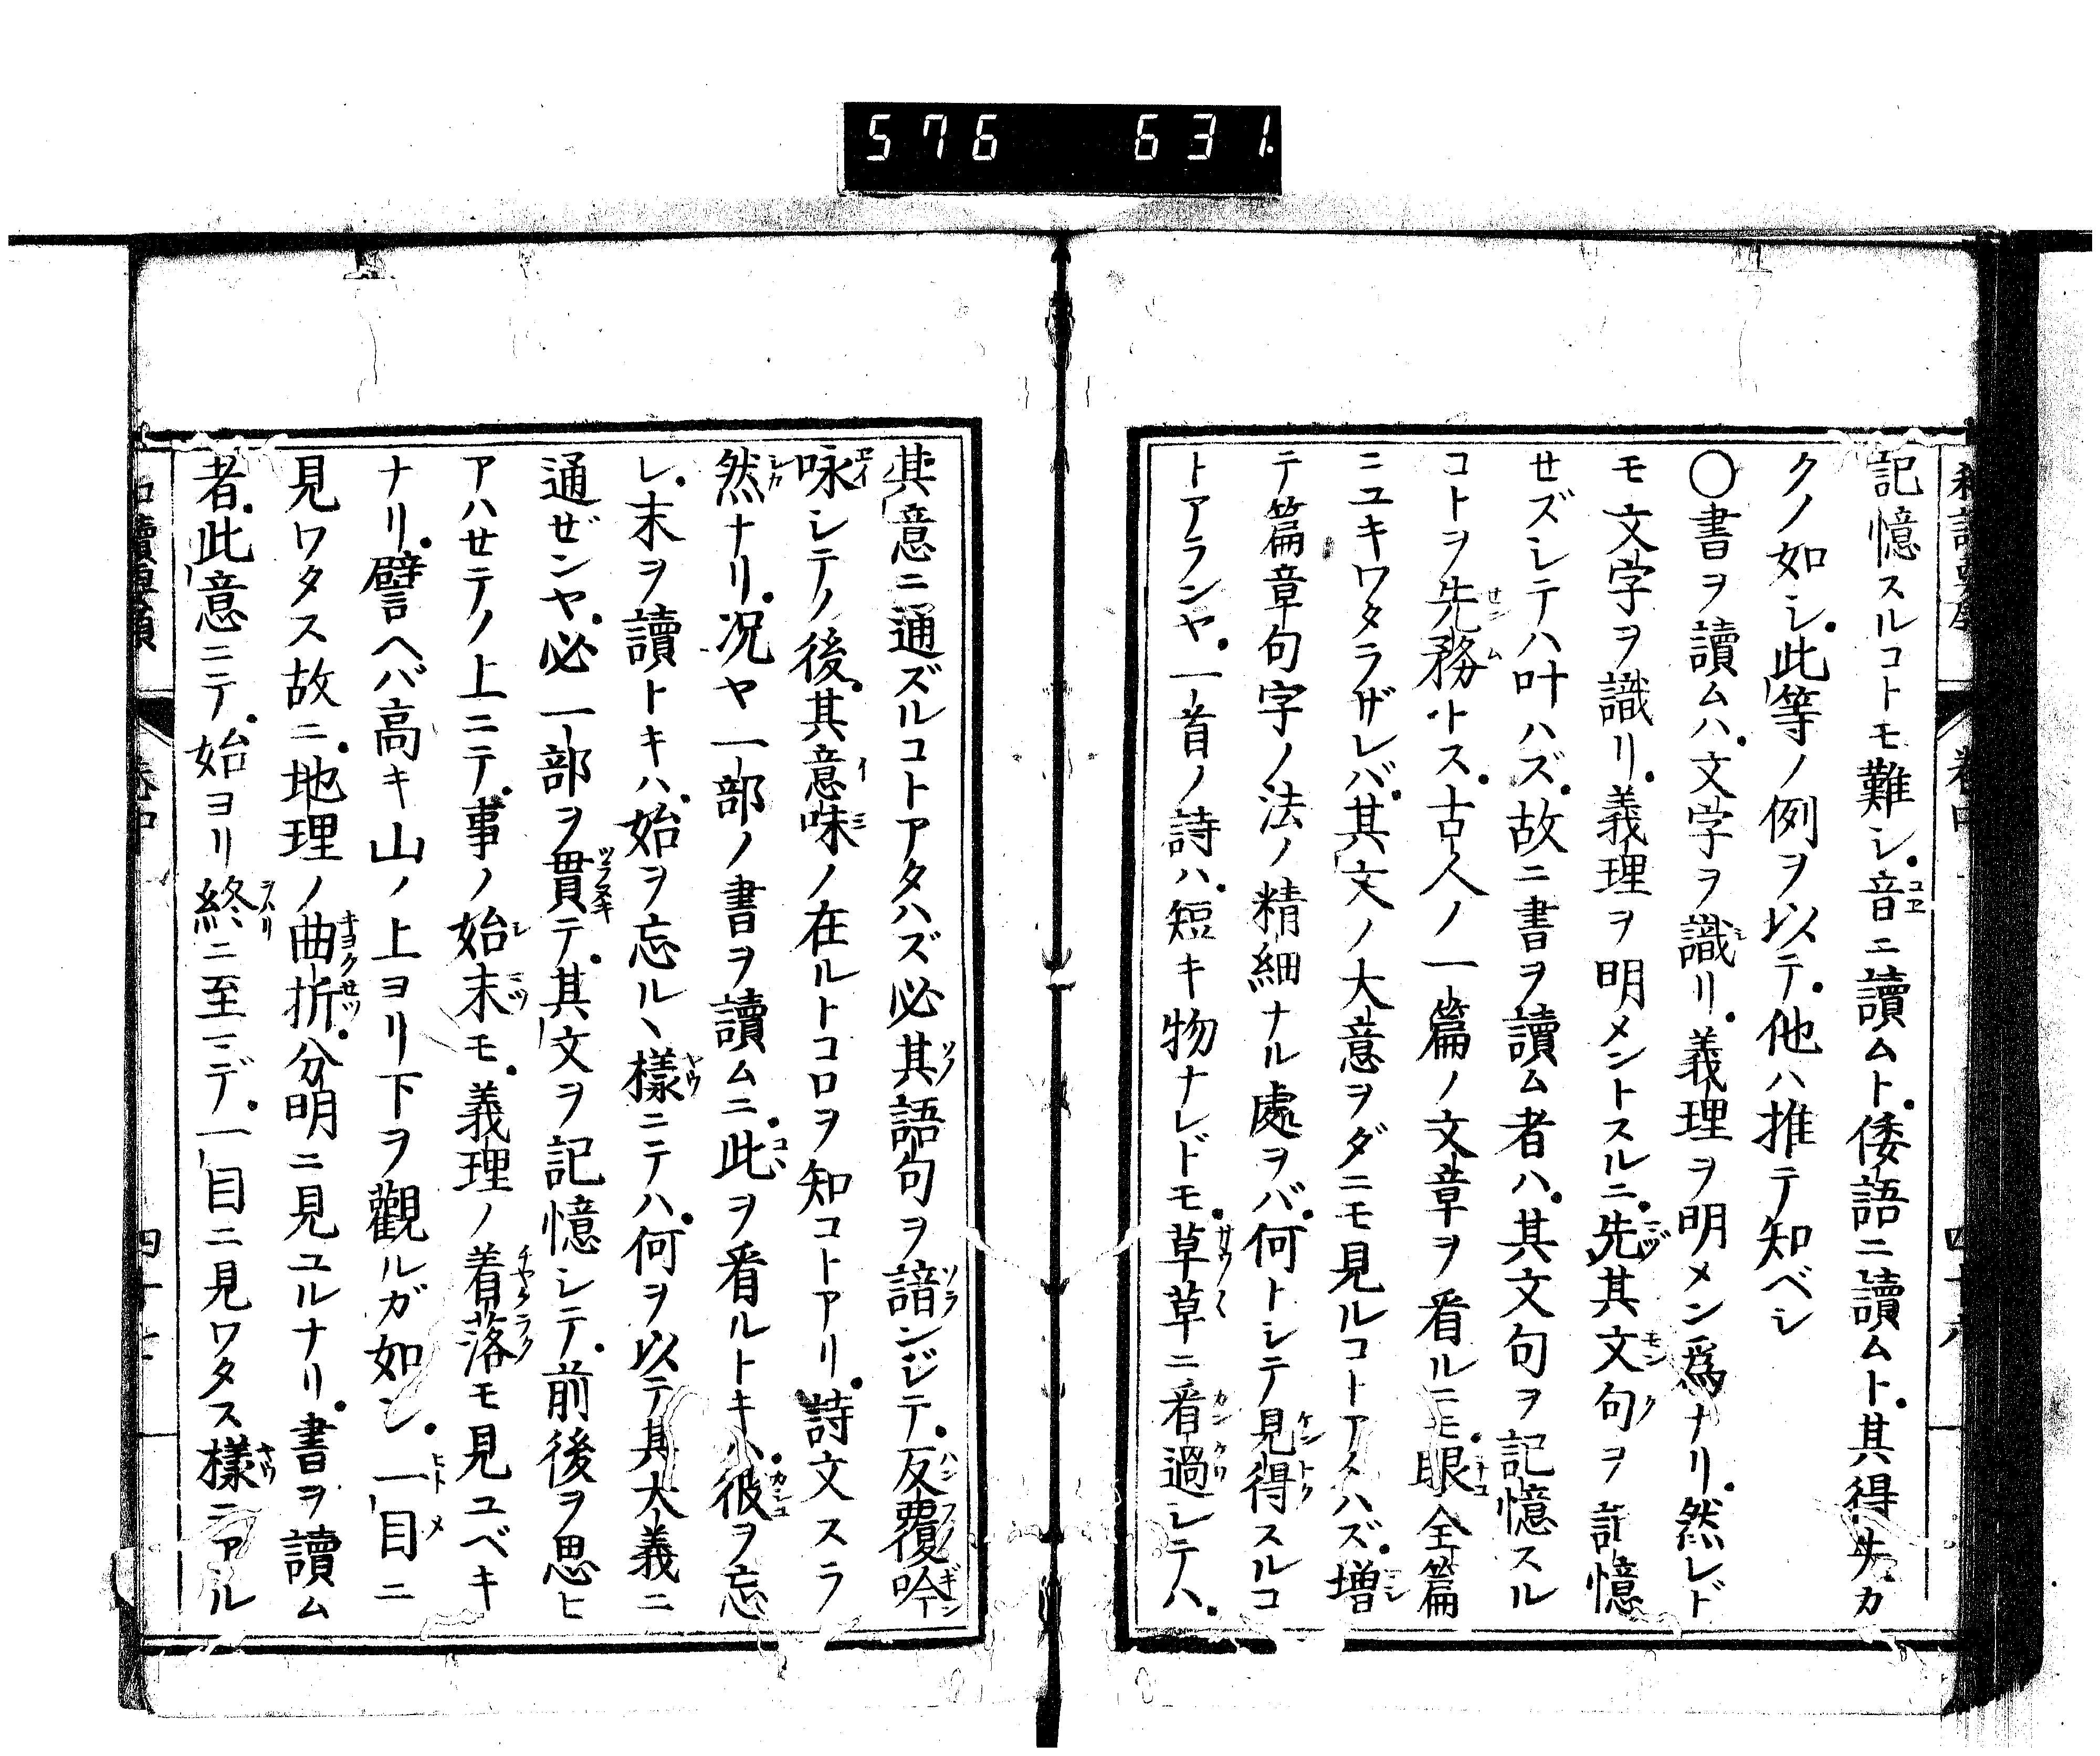 576 631
記憶スルコトモ難シ。音ニ讀ムト。倭語ニ讀ムト。其得失カ
クノ如シ。此等ノ例ヲ以テ。他ハ推テ知ベシ
〇書ヲ讀ムハ。文字ヲ識リ。義理ヲ明メン爲ナリ。然レド
モ文字ヲ識リ。義理ヲ明メントスルニ。先其文句ヲ記憶
セズシテハ叶ハズ。故ニ書ヲ讀ム者ハ。其文句ヲ記憶スル
コトヲ先務トス。古人ノ一篇ノ文章ヲ看ルニモ。眼全篇
ニユキワタラザレバ。其文ノ大意ヲダニモ見ルコトアタハズ。増
テ篇章句字ノ法ノ精細ナル處ヲバ。何トシテ見得スルコ
トアランヤ。一首ノ詩ハ。短キ物ナレドモ。草草ニ看過シテハ。
其意ニ通ズルコトアタハズ必其語句ヲ諳ンジテ。反覆吟
咏シテノ後。其意味ノ在ルトコロヲ知コトアリ。詩文スラ
然ナリ。况ヤ一部ノ書ヲ讀ムニ。此ヲ看ルトキハ。彼ヲ忘
レ。末ヲ讀トキハ。始ヲ忘ルヽ樣ニテハ。何ヲ以テ其大義ニ
通ゼンヤ。必一部ヲ貫テ。其文ヲ記憶シテ。前後ヲ思ヒ
アハセテノ上ニテ。事ノ始末モ。義理ノ着落モ見ユベキ
ナリ。譬ヘバ高キ山ノ上ヨリ下ヲ觀ルガ如シ。一目ニ
見ワタス故ニ。地理ノ曲折。分明ニ見ユルナリ。書ヲ讀ム
者。此意ニテ。始ヨリ終ニ至マデ。一目ニ見ワタス樣ニアル